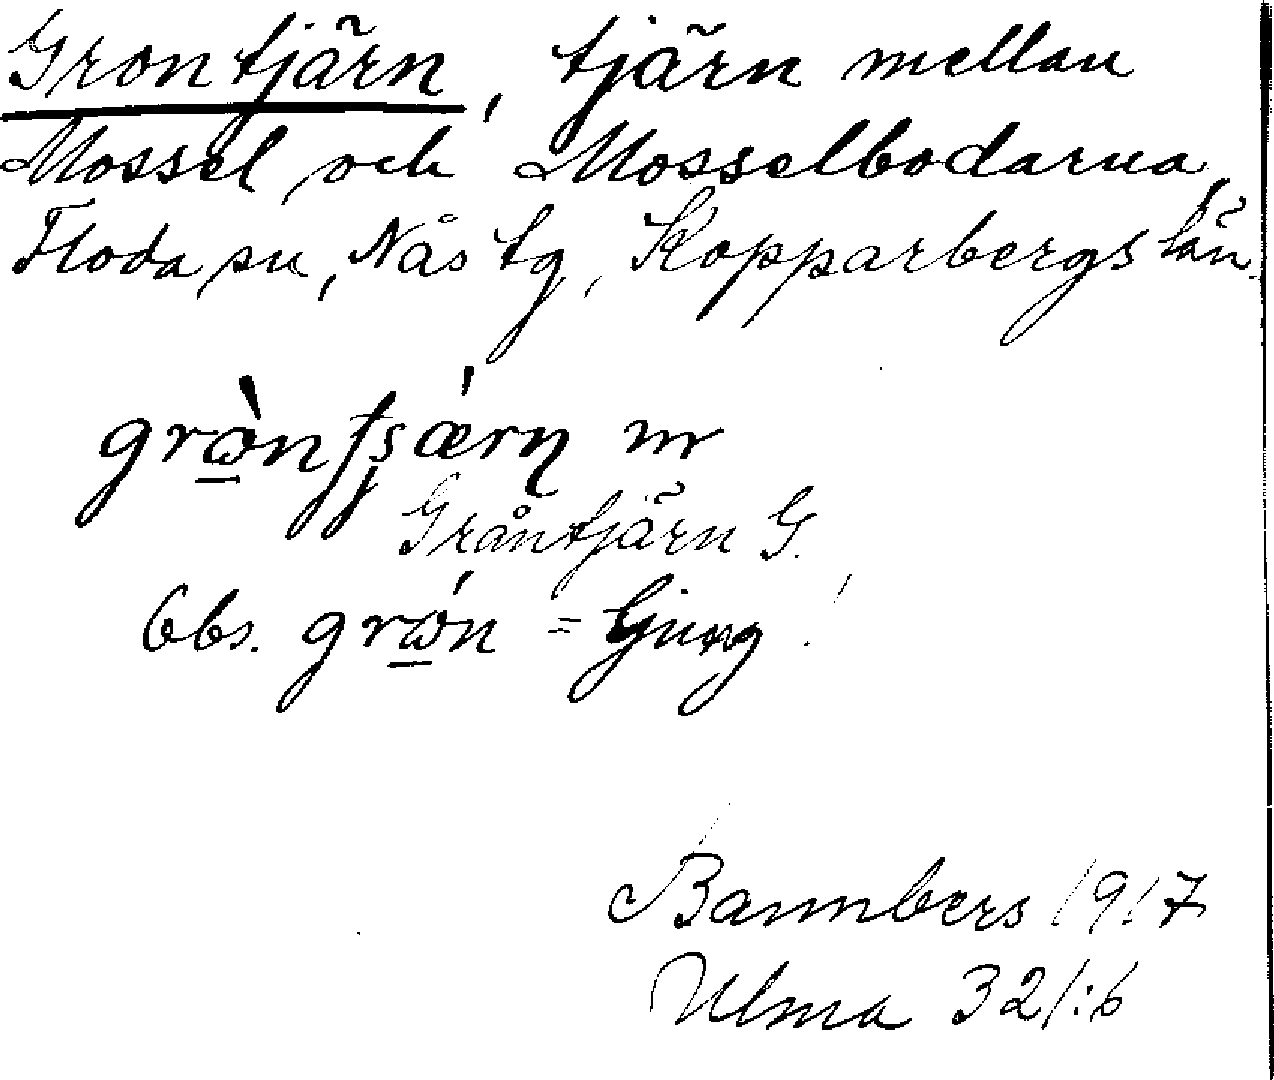 Grontjärn, tjärn mellan
Mossel och Mosselbodarna,
Floda sn, Nås tg, Kopparbergs län.
m
Gråntjärn G.
Obs. = Ljung!
Bannbers 1917
Ulma 321:6